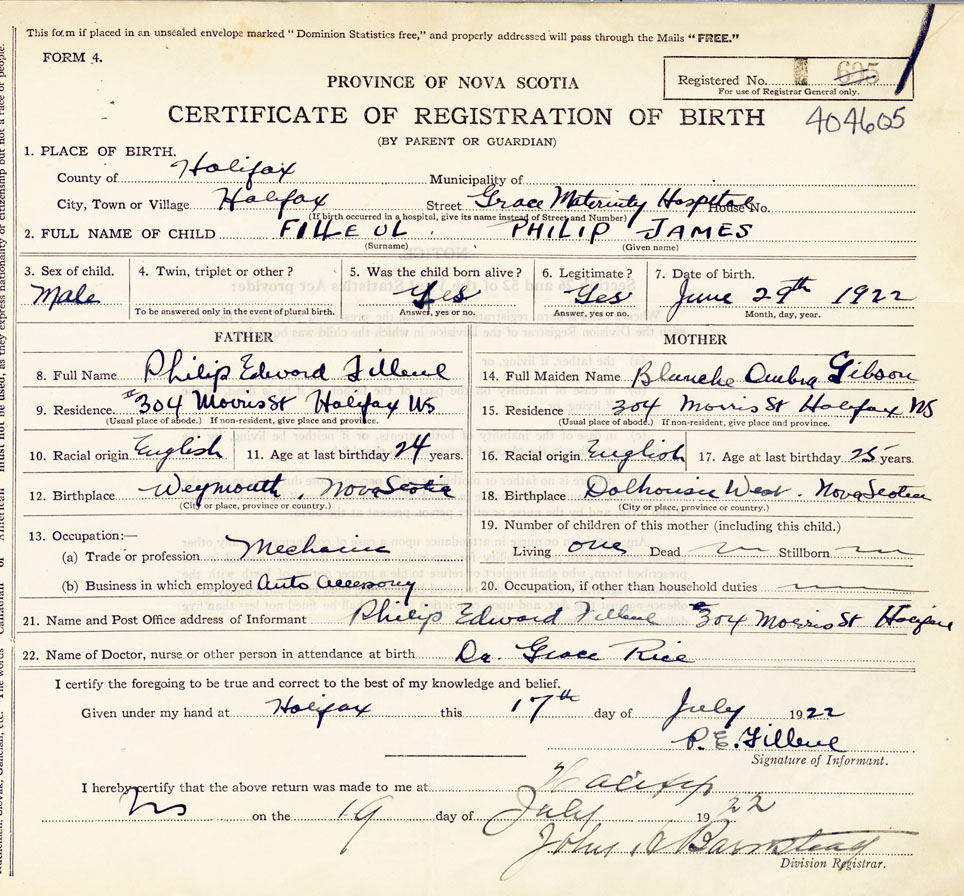 This form if placed in an unsealed envelope marked "Dominion Statistics free," and properly addressed will pass through the Mails "FREE."
FORM 4.
PROVINCE OF NOVA SCOTIA
Registered No. 605
For use of Registrar General only.
CERTIFICATE OF REGISTRATION OF BIRTH 404605
(BY PARENT OR GUARDIAN)
1. PLACE OF BIRTH.
County of Halifax Municipality of
City, Town or Village Halifax Street Grace Maternity Hospital House No.
(If birth occurred in a hospital, give its name instead of Street and Number)
2. FULL NAME OF CHILD FILLEUL PHILIP JAMES
(Surname) (Given name)
3. Sex of child. 4. Twin, triplet or other? 5. Was the child born alive? 6. Legitimate? 7. Date of birth.
Male Yes Yes June 29th 1922
To be answered only in the event of plural birth. Answer, yes or no. Answer, yes or no. Month, day, year.
FATHER MOTHER
8. Full Name Philip Edward Filleul 14. Full Maiden Name Blanche Gibson
9. Residence #304 Morris St Halifax NS 15. Residence 304 Morris St Halifax NS
(Usual place of abode.) If non-resident, give place and province. (Usual place of abode.) If non-resident, give place and province.
10. Racial origin English 11. Age at last birthday 24 years. 16. Racial origin English 17. Age at last birthday 25 years.
12. Birthplace Weymouth, Nova Scotia 18. Birthplace Dalhousie West. Nova Scotia
(City or place, province or country.) (City or place, province or country.)
13. Occupation:— 19. Number of children of this mother (including this child.)
(a) Trade or profession Mechanic Living one Dead Stillborn
(b) Business in which employed Auto accessory 20. Occupation, if other than household duties
21. Name and Post Office address of Informant Philip Edward Filleul #304 Morris St Halifax
22. Name of Doctor, nurse or other person in attendance at birth Dr. Grace Rice
I certify the foregoing to be true and correct to the best of my knowledge and belief.
Given under my hand at Halifax this 17th day of July 1922
P. E. Filleul
Signature of Informant.
I hereby certify that the above return was made to me at Halifax
NS on the 19 day of July 1922
John A Barnstead
Division Registrar.